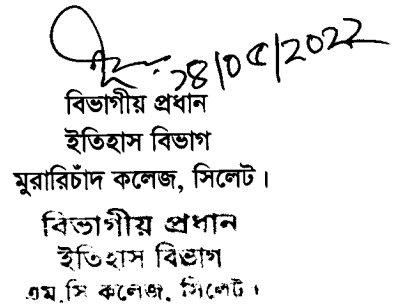 ২৪/০৫/২০২২
বিভাগীয় প্রধান
ইতিহাস বিভাগ
মুরারিচাঁদ কলেজ, সিলেট।
বিভাগীয় প্রধান
ইতিহাস বিভাগ
এম.সি কলেজ, সিলেট।